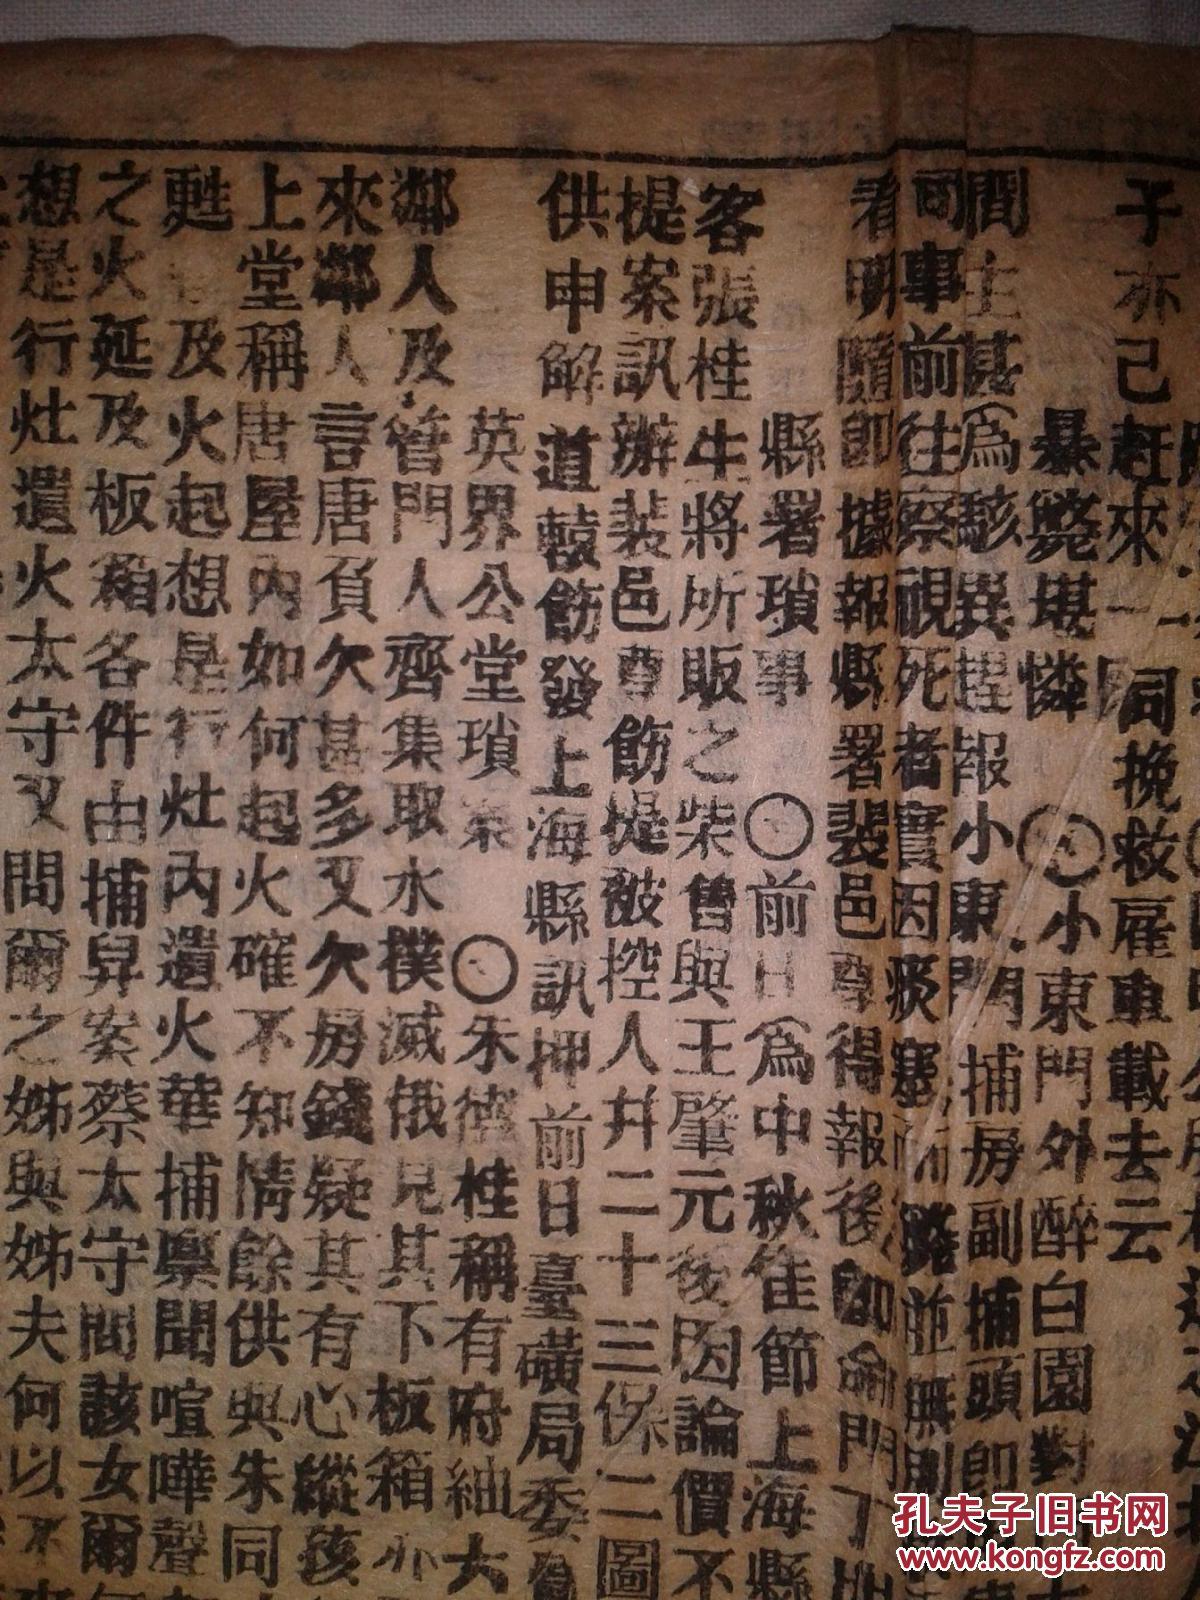 子亦己赶來一同挽救雇車載去云
暴斃堪憐 ○小東門外醉白園對
間主甚爲駭異趕報小東門捕房副捕頭卽
司事前往察視死者實因痰塞 並無別
看明隨卽據報縣署裴邑尊得報後卽 門丁
縣署瑣事 ○前日爲中秋佳節上海縣
客張桂生將所販之柴售與王肇元後因論價不
提案訊辦裝邑尊飭提被控人幷二十三保二圖
供申解道轅飭發上海縣訊押前日臺磺局委員
英界公堂瑣案 ○朱 桂稱有府紬大
鄰人及管門人齊集取水撲滅俄見其下板箱亦
來鄰人言唐負欠甚多又欠房錢疑其有心縱
上堂稱唐屋內如何起火確不知情餘供與朱同
甦 及火起想是行灶內遺火華捕稟聞喧嘩聲
之火延及板箱各件由捕舁案蔡太守問該女爾
想是行灶遺火太守又問爾之姊與姊夫何以不
孔夫子旧书网
www.kongfz.com